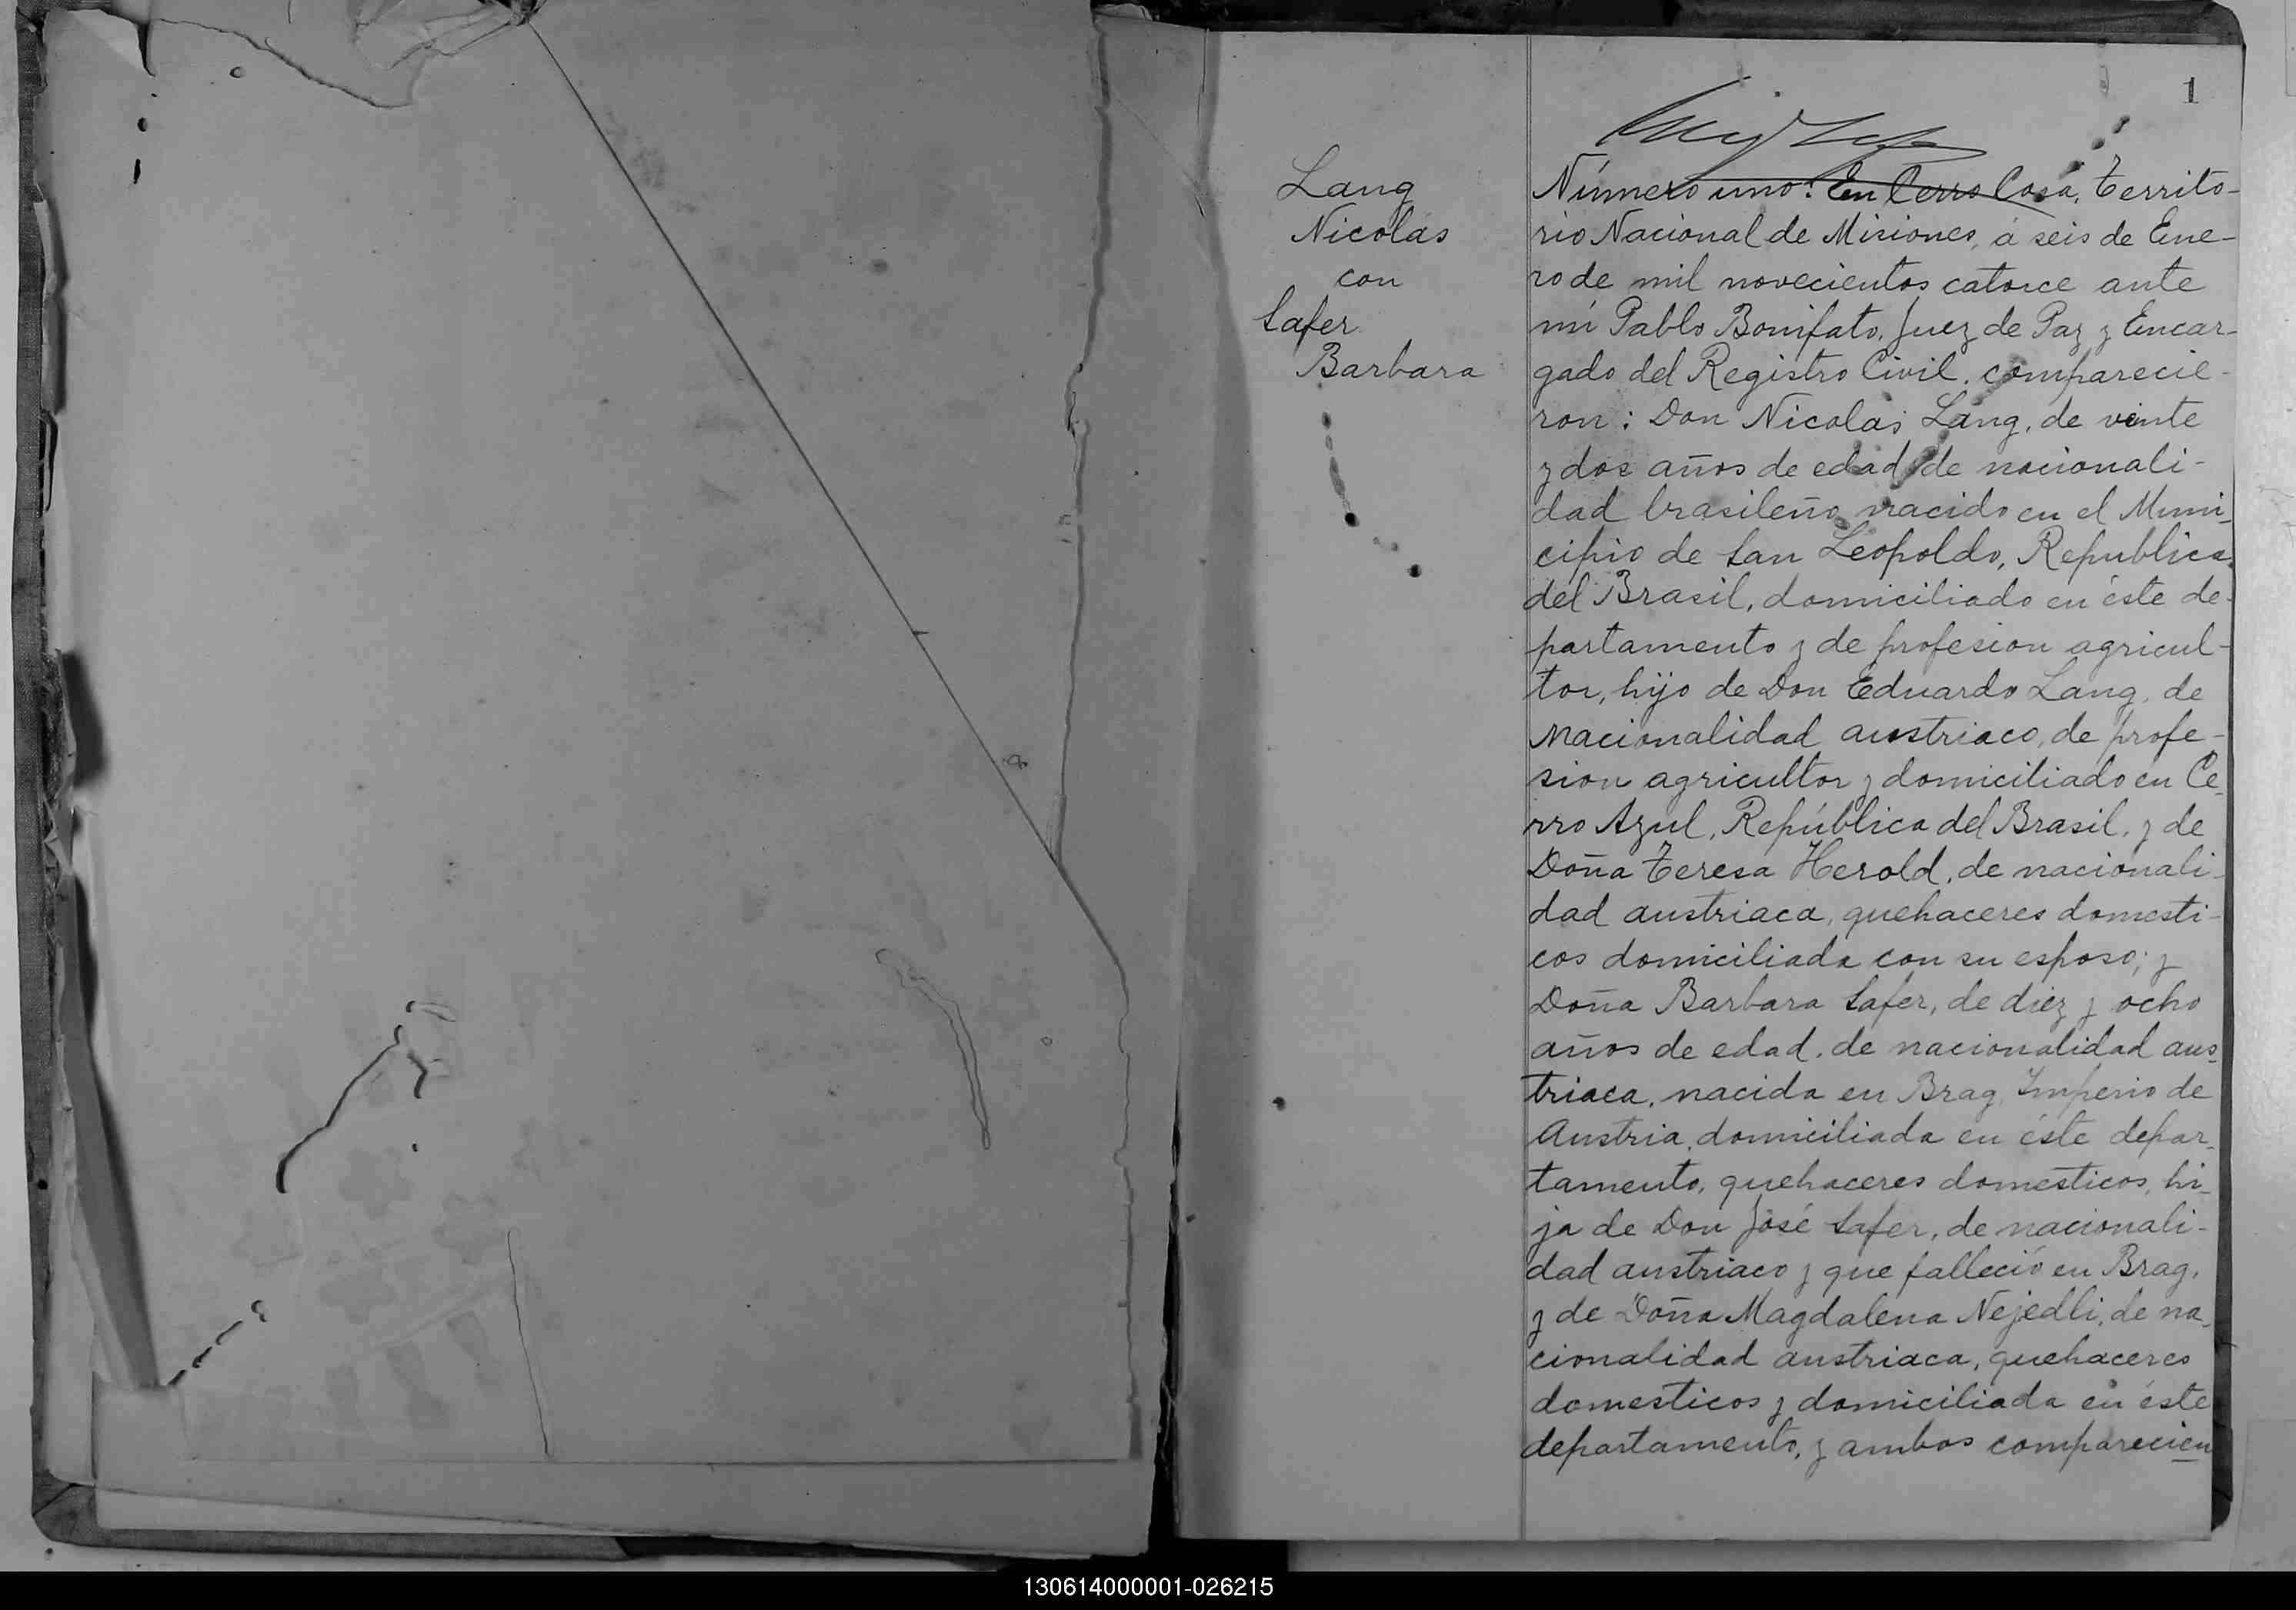 1
Lang
Nicolás
con
Safer
Barbara
Número uno: En Cerro Corá, Territo-
rio Nacional de Misiones, á seis de Ene-
ro de mil novecientos catorce ante
mi Pablo Bonifato, Juez de Paz y Encar-
gado del Registro Civil, comparecie-
ron: Don Nicolás Lang, de veinte
y dos años de edad, de nacionali-
dad brasileño, nacido en el Muni-
cipio de San Leopoldo, Republica
del Brasil, domiciliado en éste de-
partamento y de profesion agricul-
tor, hijo de Don Eduardo Lang, de
nacionalidad austriaco, de profe-
sion agricultor y domiciliado en Ce-
rro Azul, República del Brasil, y de
Doña Teresa Herold, de nacionali-
dad austriaca, quehaceres domesti-
cos domiciliada con su esposo; y
Doña Barbara Safer, de diez y ocho
años de edad, de nacionalidad aus-
triaca, nacida en Brag, Imperio de
Austria, domiciliada en éste depar-
tamento, quehaceres domesticos, hi-
ja de Don José Safer, de nacionali-
dad austriaco y que falleció en Brag,
y de Doña Magdalena Nejedli, de na-
cionalidad austriaca, quehaceres
domesticos y domiciliada en éste
departamento, y ambos comparecien
130614000001-026215